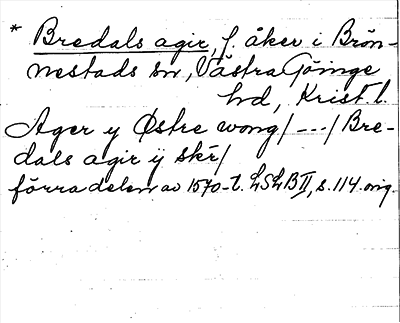 * Bredals agir, f. åker i Brön-
nestads sn, Västra Göinge
hd, Krist. l.
Ager y Østre wong/---/Bre-
dals agir ÿ skr/
förra delen av 1570-t. LSLB II, s. 114. orig.